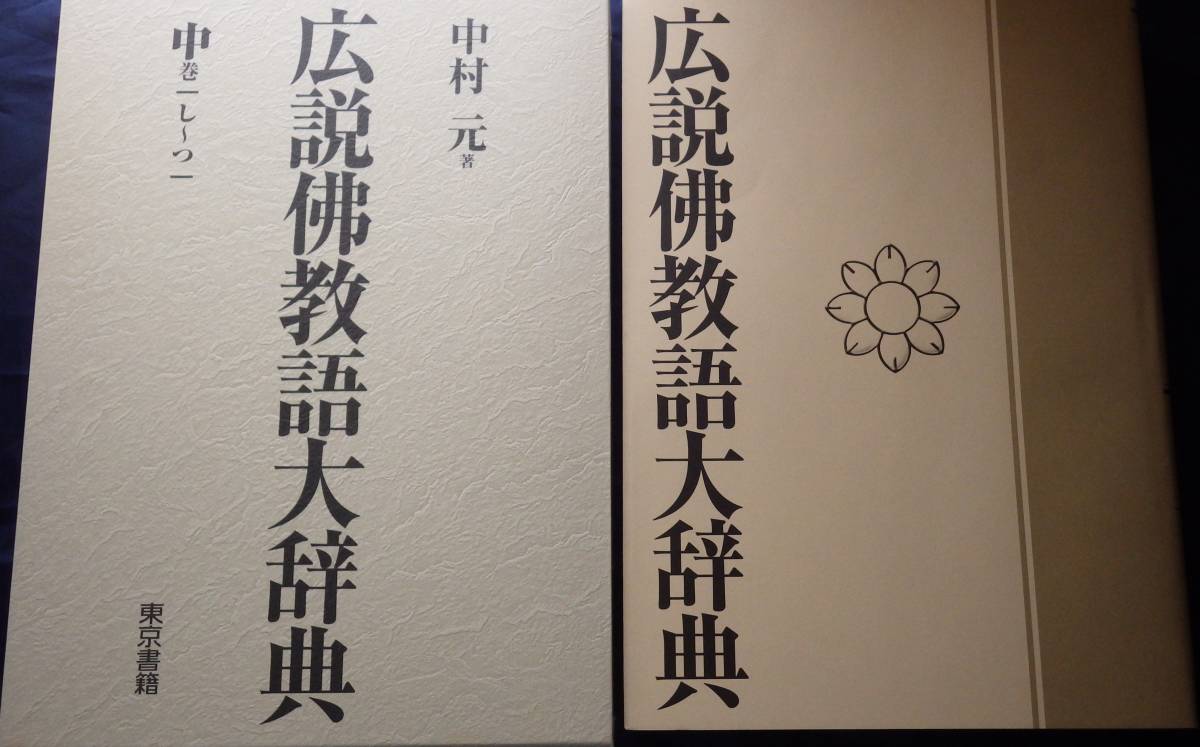 中村 元 著
広説佛教語大辞典
中巻 ー し〜つ ー
東京書籍
広説佛教語大辞典